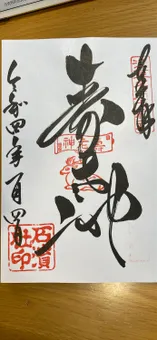 奉拝
寿老神
令和四年一月四日
石濱
社印